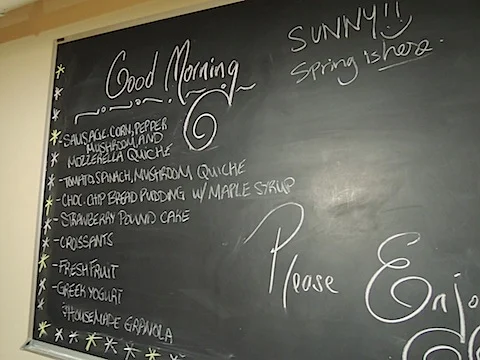 Good Morning
SUNNY!!
Spring is here.
-SAUSAGE, CORN, PEPPER
MUSHROOM AND
MOZZERELLA QUICHE
-TOMATO, SPINACH, MUSHROOM QUICHE
-CHOC. CHIP BREAD PUDDING W/ MAPLE SYRUP
-STRAWBERRY POUND CAKE
-CROISSANTS
-FRESH FRUIT
-GREEK YOGURT
&HOUSEMADE GRANOLA
Please Enjo